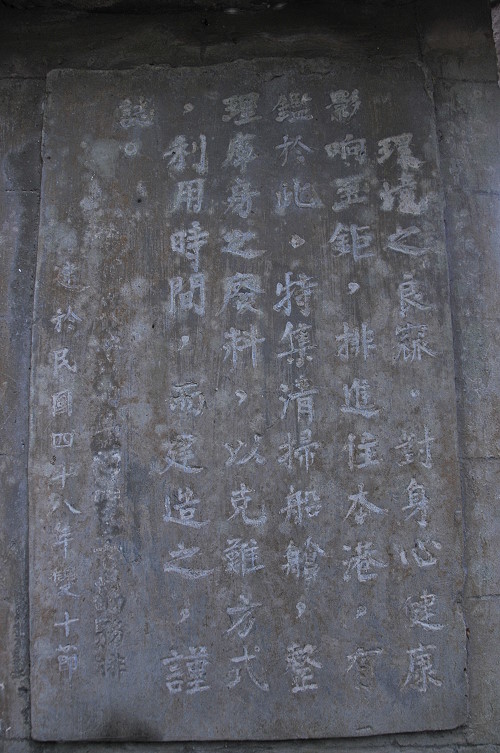 環境之良窳，對身心健康
影响至鉅，排進住本港，有
鑑於此。特集清掃船艙，整
理庫房之廢料，以克難方式
，利用時間，而建造之，謹
誌。
務排
建於民國四十八年雙十節